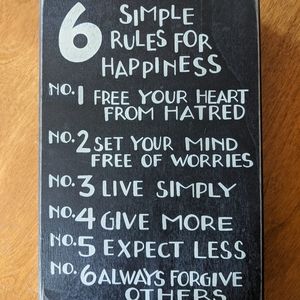 6 SIMPLE
RULES FOR
HAPPINESS
NO. 1 FREE YOUR HEART
FROM HATRED
NO. 2 SET YOUR MIND
FREE OF WORRIES
NO. 3 LIVE SIMPLY
NO. 4 GIVE MORE
NO. 5 EXPECT LESS
NO. 6 ALWAYS FORGIVE
OTHERS